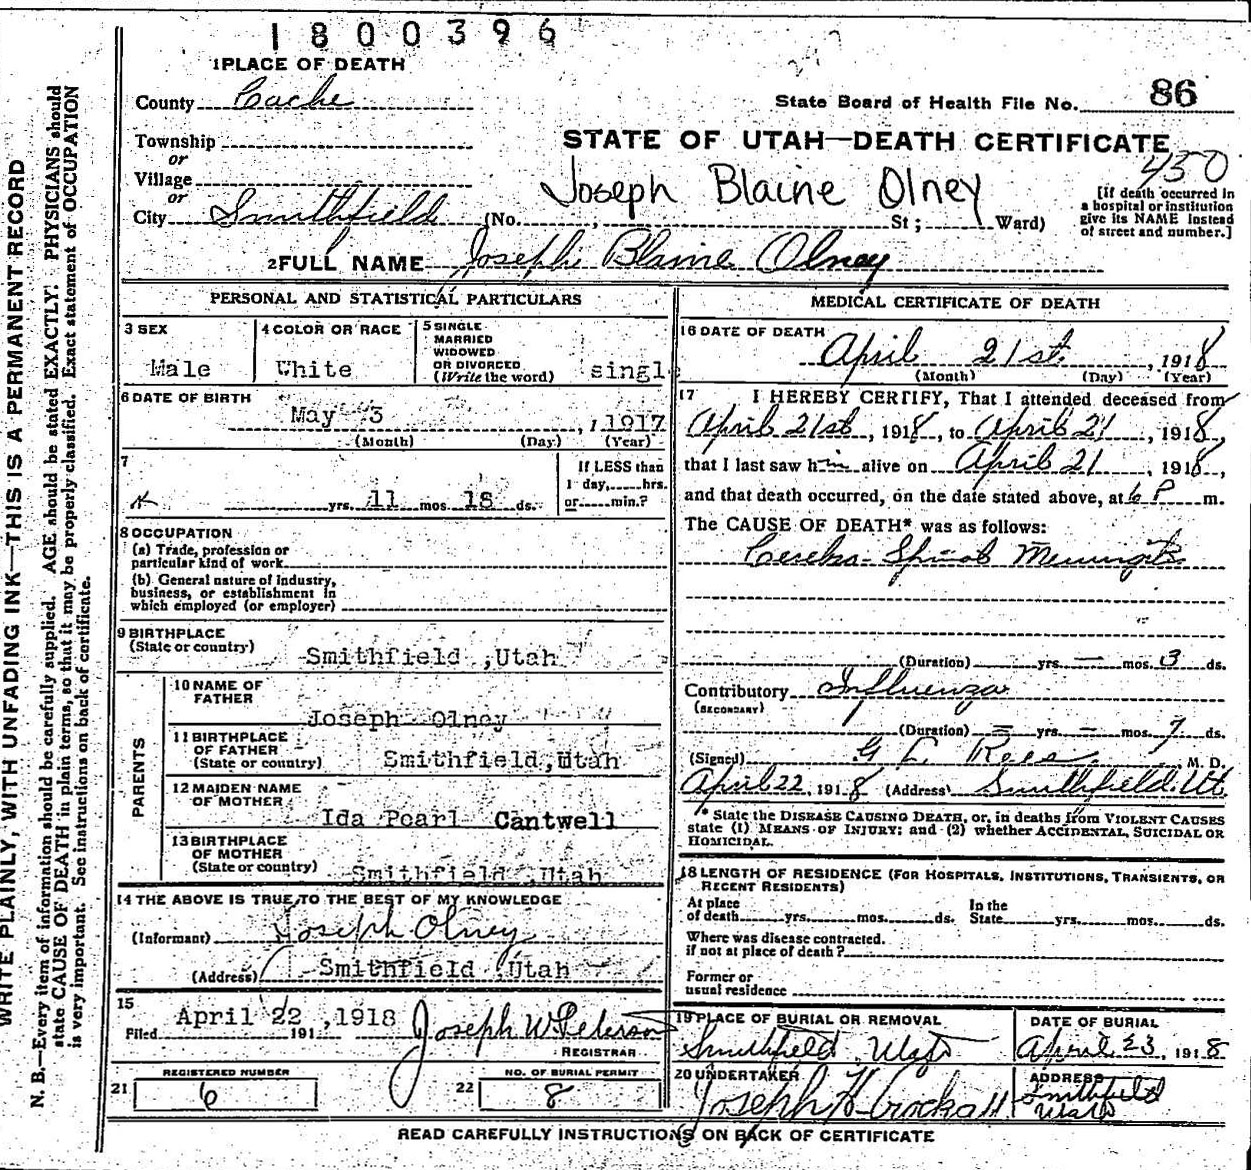 1800396
1 PLACE OF DEATH
County Cache
State Board of Health File No. 86
Township
or
Village
or
City Smithfield (No. , St; Ward)
STATE OF UTAH—DEATH CERTIFICATE
450
Joseph Blaine Olney
[If death occurred in
a hospital or institution
give its NAME instead
of street and number.]
2 FULL NAME Joseph Blaine Olney
PERSONAL AND STATISTICAL PARTICULARS
3 SEX
Male
4 COLOR OR RACE
White
5 SINGLE
MARRIED
WIDOWED
OR DIVORCED
(Write the word) single
6 DATE OF BIRTH
May 3, 1917
(Month) (Day) (Year)
7
yrs. 11 mos. 18 ds.
If LESS than
1 day, hrs.
or min.?
8 OCCUPATION
(a) Trade, profession or
particular kind of work
(b) General nature of industry,
business, or establishment in
which employed (or employer)
9 BIRTHPLACE
(State or country) Smithfield ,Utah
PARENTS
10 NAME OF
FATHER
Joseph Olney
11 BIRTHPLACE
OF FATHER
(State or country) Smithfield,Utah
12 MAIDEN NAME
OF MOTHER
Ida Pearl Cantwell
13 BIRTHPLACE
OF MOTHER
(State or country) Smithfield ,Utah
14 THE ABOVE IS TRUE TO THE BEST OF MY KNOWLEDGE
(Informant) Joseph Olney
(Address) Smithfield ,Utah
15
Filed April 22 ,1918 191 Joseph W. Peterson
REGISTRAR
21 REGISTERED NUMBER
6
22 NO. OF BURIAL PERMIT
8
MEDICAL CERTIFICATE OF DEATH
16 DATE OF DEATH
April 21st, 1918
(Month) (Day) (Year)
17 I HEREBY CERTIFY, That I attended deceased from
April 21st, 1918, to April 21, 1918,
that I last saw him alive on April 21, 1918,
and that death occurred, on the date stated above, at 6 P m.
The CAUSE OF DEATH* was as follows:
Cerebro-Spinal Meningitis
(Duration) yrs. — mos. 3 ds.
Contributory Influenza
(SECONDARY)
(Duration) — yrs. — mos. 7 ds.
(Signed) G L Rees, M. D.
April 22, 1918 (Address) Smithfield. Ut.
* State the DISEASE CAUSING DEATH, or, in deaths from VIOLENT CAUSES
state (1) MEANS OF INJURY; and (2) whether ACCIDENTAL, SUICIDAL OR
HOMICIDAL.
18 LENGTH OF RESIDENCE (FOR HOSPITALS, INSTITUTIONS, TRANSIENTS, OR
RECENT RESIDENTS)
At place
of death yrs. mos. ds.
In the
State yrs. mos. ds.
Where was disease contracted.
if not at place of death?
Former or
usual residence
19 PLACE OF BURIAL OR REMOVAL
Smithfield, Utah
DATE OF BURIAL
April 23, 1918
20 UNDERTAKER
Joseph H.
ADDRESS
Smithfield
Utah
READ CAREFULLY INSTRUCTIONS ON BACK OF CERTIFICATE
WRITE PLAINLY, WITH UNFADING INK—THIS IS A PERMANENT RECORD
N. B.—Every item of information should be carefully supplied. AGE should be stated EXACTLY. PHYSICIANS should
state CAUSE OF DEATH in plain terms, so that it may be properly classified. Exact statement of OCCUPATION
is very important. See instructions on back of certificate.